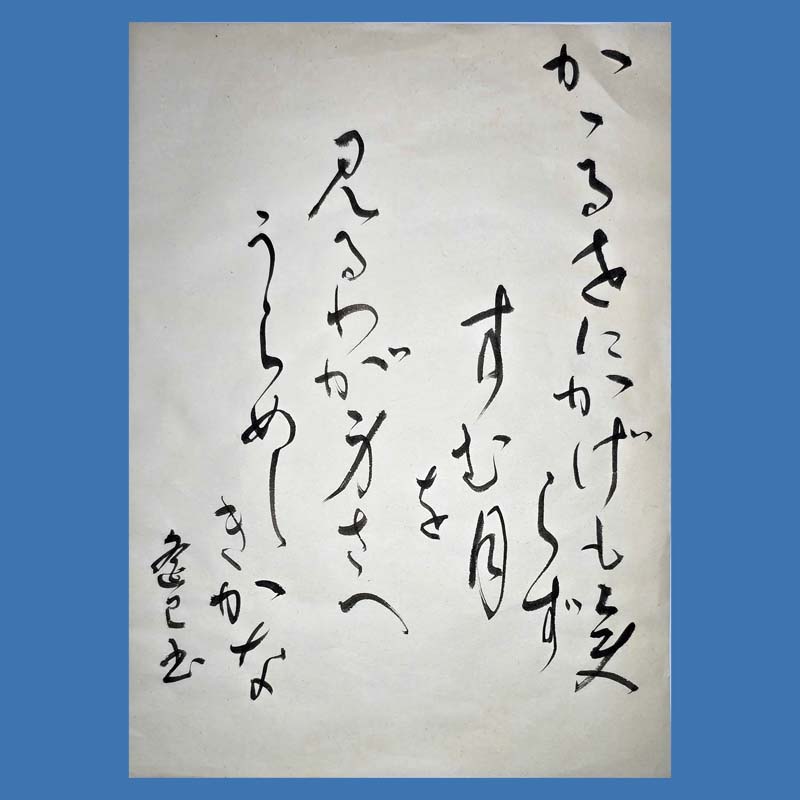 かゝるせにかげも変
らず
すむ月
を
見るわが身さへ
うらめし
きかな